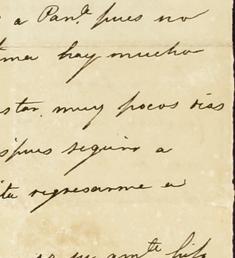 a Pan.ª pues no
hay mucho
star muy pocos dias
spues seguiro a
ita regresarme a
su am.te hijo